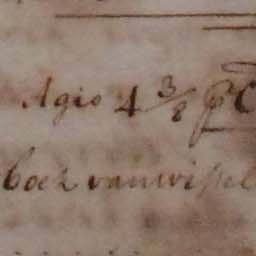 Agio 4 3/8 p C
boek van wissel